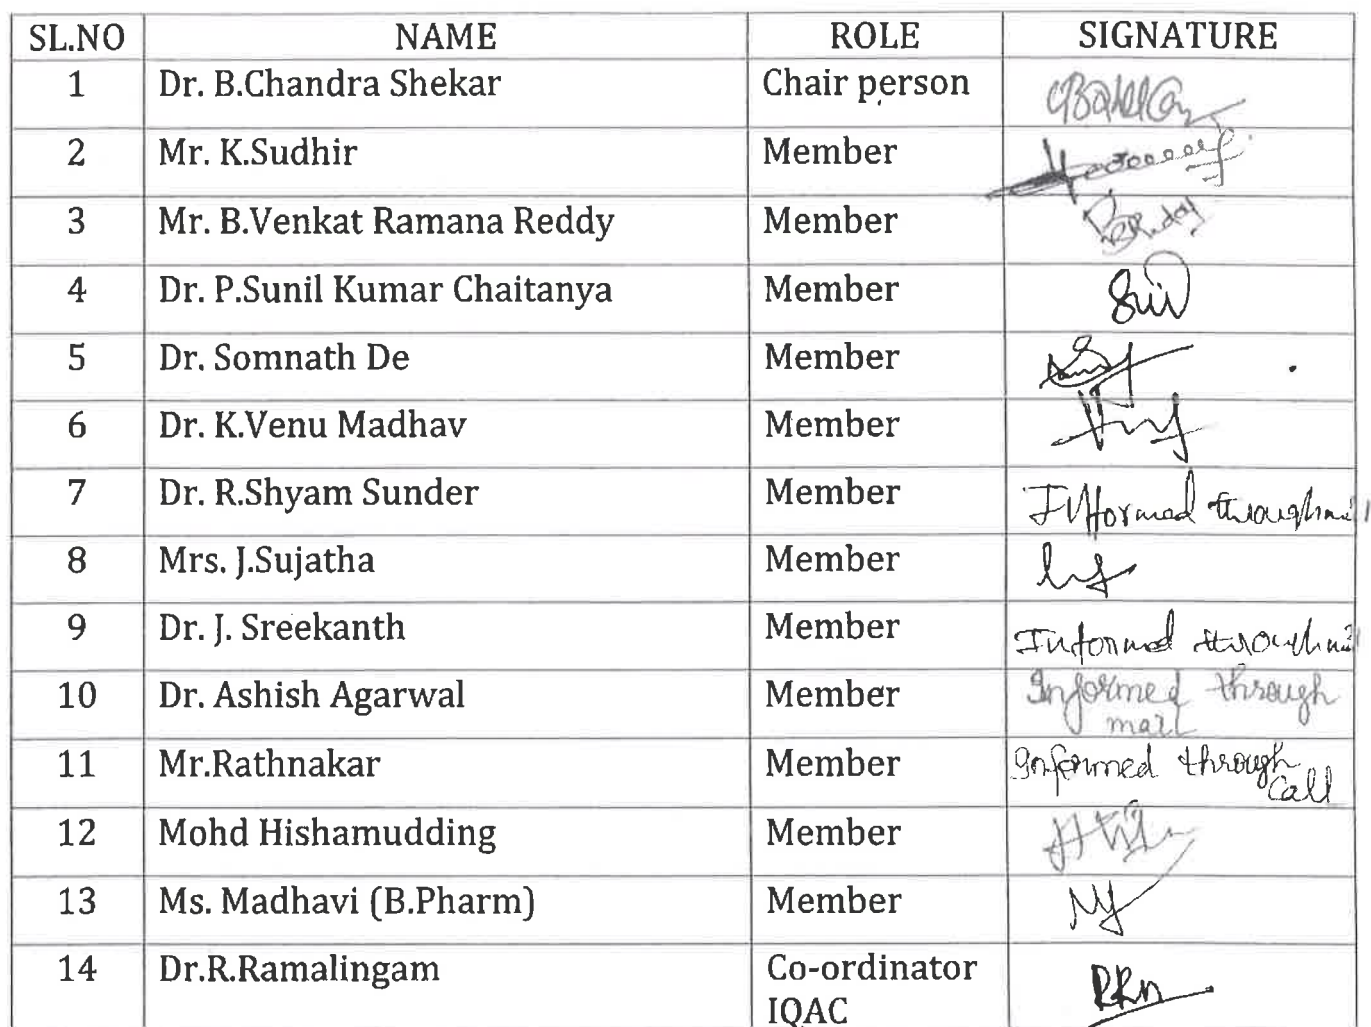 SL.NO NAME ROLE SIGNATURE
1 Dr. B.Chandra Shekar Chair person
2 Mr. K.Sudhir Member
3 Mr. B.Venkat Ramana Reddy Member
4 Dr. P.Sunil Kumar Chaitanya Member
5 Dr. Somnath De Member
6 Dr. K.Venu Madhav Member
7 Dr. R.Shyam Sunder Member Informed through mail
8 Mrs. J.Sujatha Member
9 Dr. J. Sreekanth Member Informed through mail
10 Dr. Ashish Agarwal Member Informed through
mail
11 Mr.Rathnakar Member Informed through
call
12 Mohd Hishamudding Member
13 Ms. Madhavi (B.Pharm) Member
14 Dr.R.Ramalingam Co-ordinator
IQAC